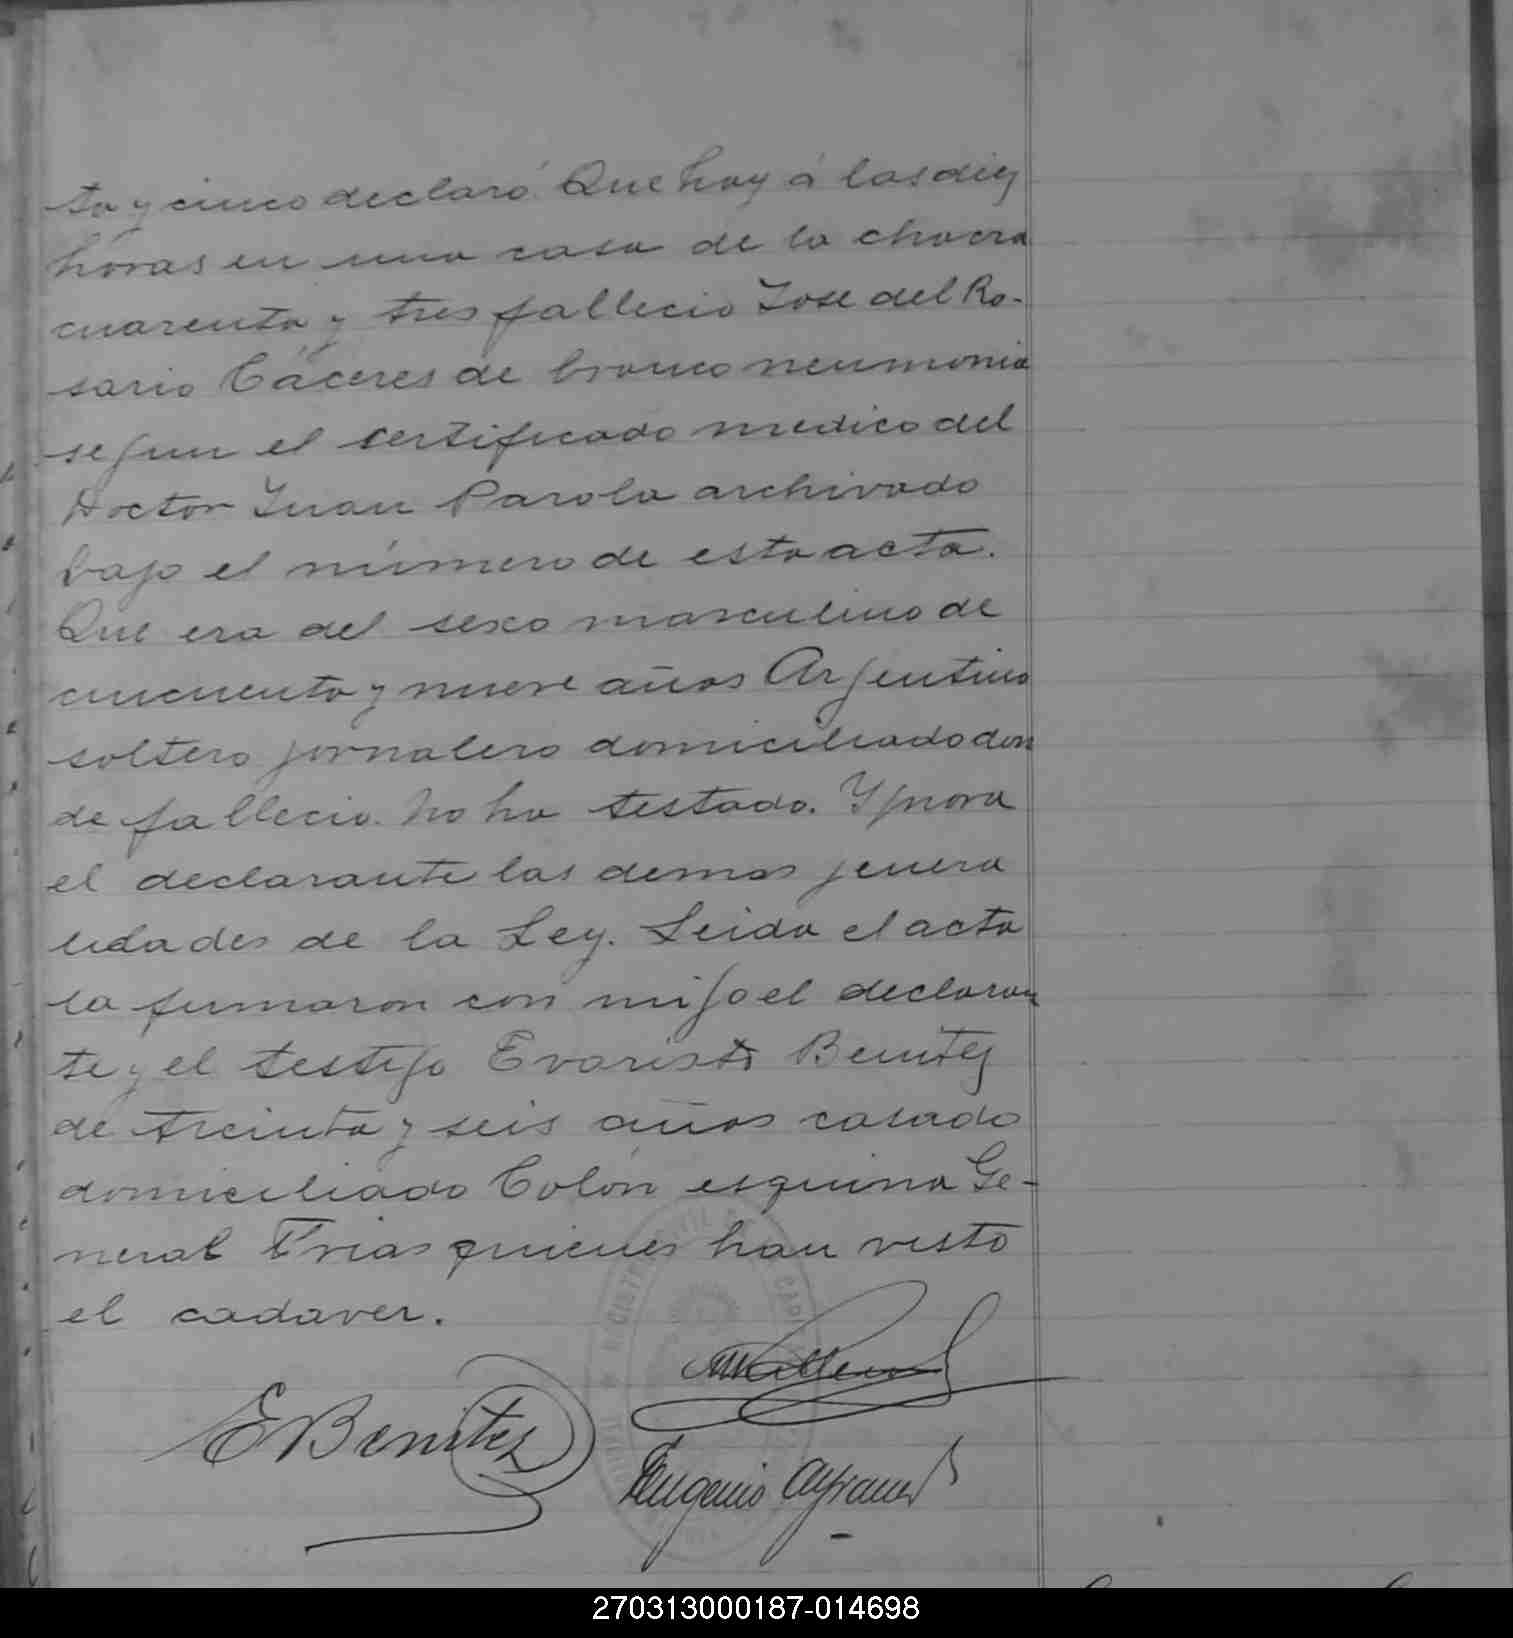 ta y cinco declaró: Que hoy á las diez
horas en una casa de la chacra
cuarenta y tres fallecio Jose del Ro-
sario Cáceres de bronco neumonia
segun el certificado medico del
Doctor Juan Parola archivado
bajo el número de esta acta.
Que era del sexo masculino de
cincuenta y nueve años Argentino
soltero jornalero domiciliado don
de fallecio. No ha testado. Ygnora
el declarante las demas jenera
lidades de la Ley. Leida el acta
la firmaron con migo el declaran
te y el testigo Evaristo Benitez
de treinta y seis años casado
domiciliado Colón esquina Ge-
neral Frias quienes han visto
el cadaver.
EBenitez
Eugenio
REGISTRO CIVIL DE LA
270313000187-014698